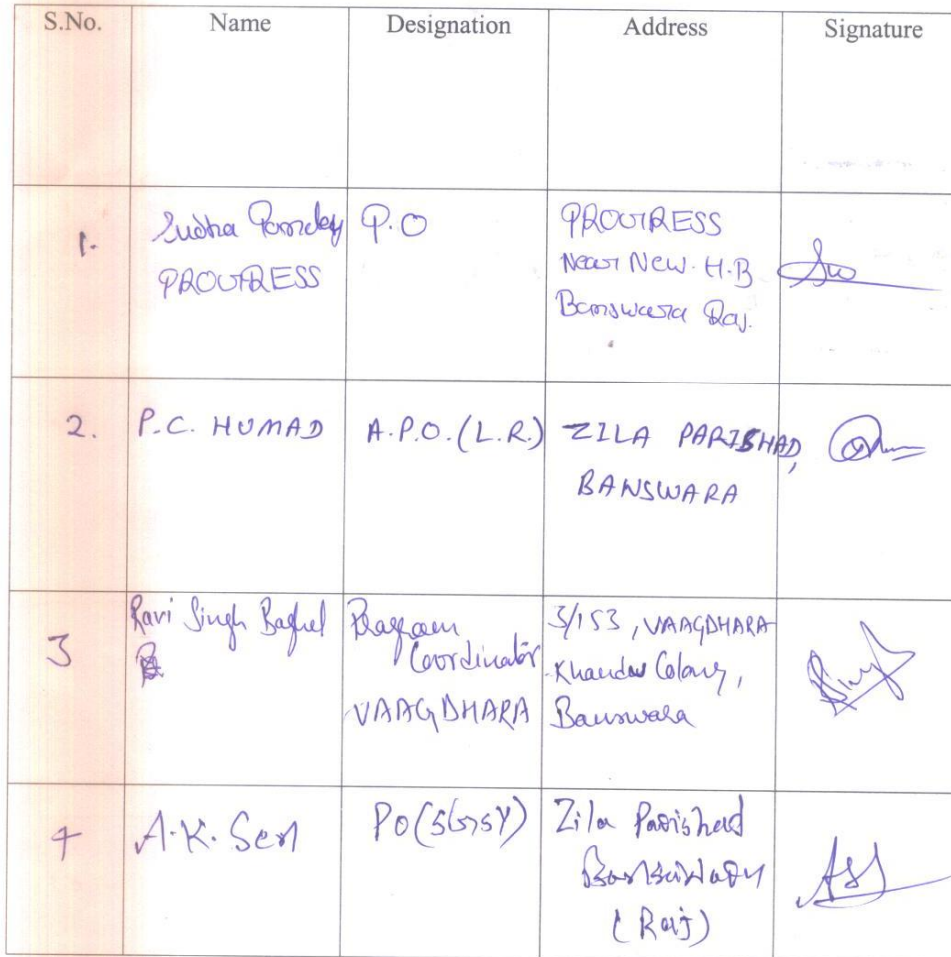 S.No. Name Designation Address Signature
1. Sudha Pandey P.O PROGRESS
PROGRESS Near New. H.B
Banswara Raj.
2. P.C. HUMAD A.P.O. (L.R.) ZILA PARISHAD,
BANSWARA
3 Ravi Singh Baghel Program 3/153, VAAGDHARA
Coordinator Khandu Colony,
VAAGDHARA Banswara
4 A.K. Sen PO (SGSY) Zila Parishad
Banswara
(Raj)